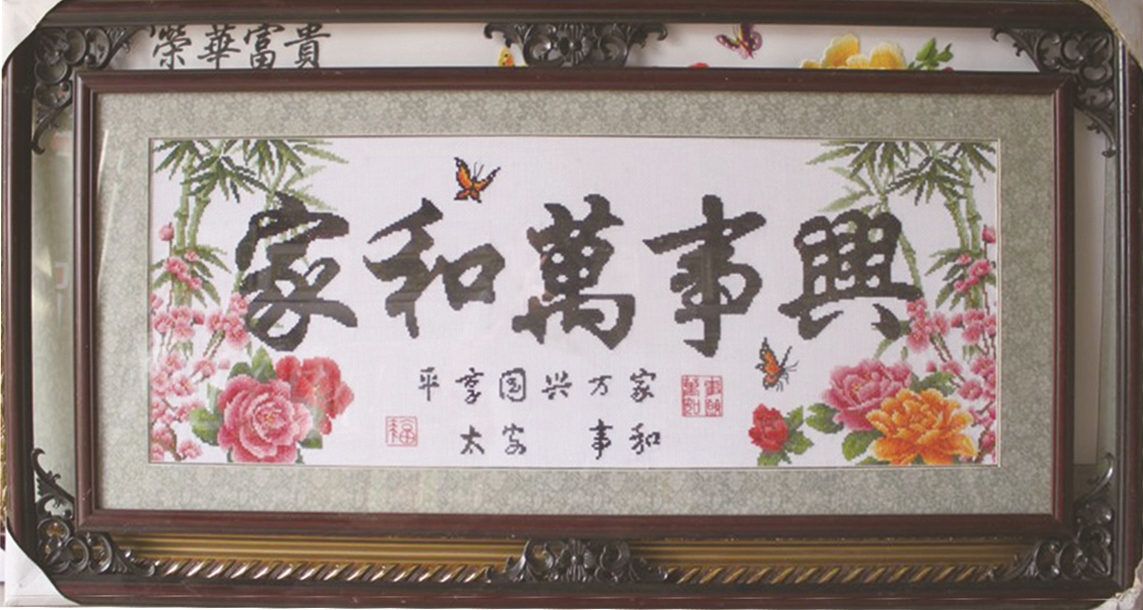 榮華富貴
家和萬事興
家和
万事
兴
国安
享太
平
福